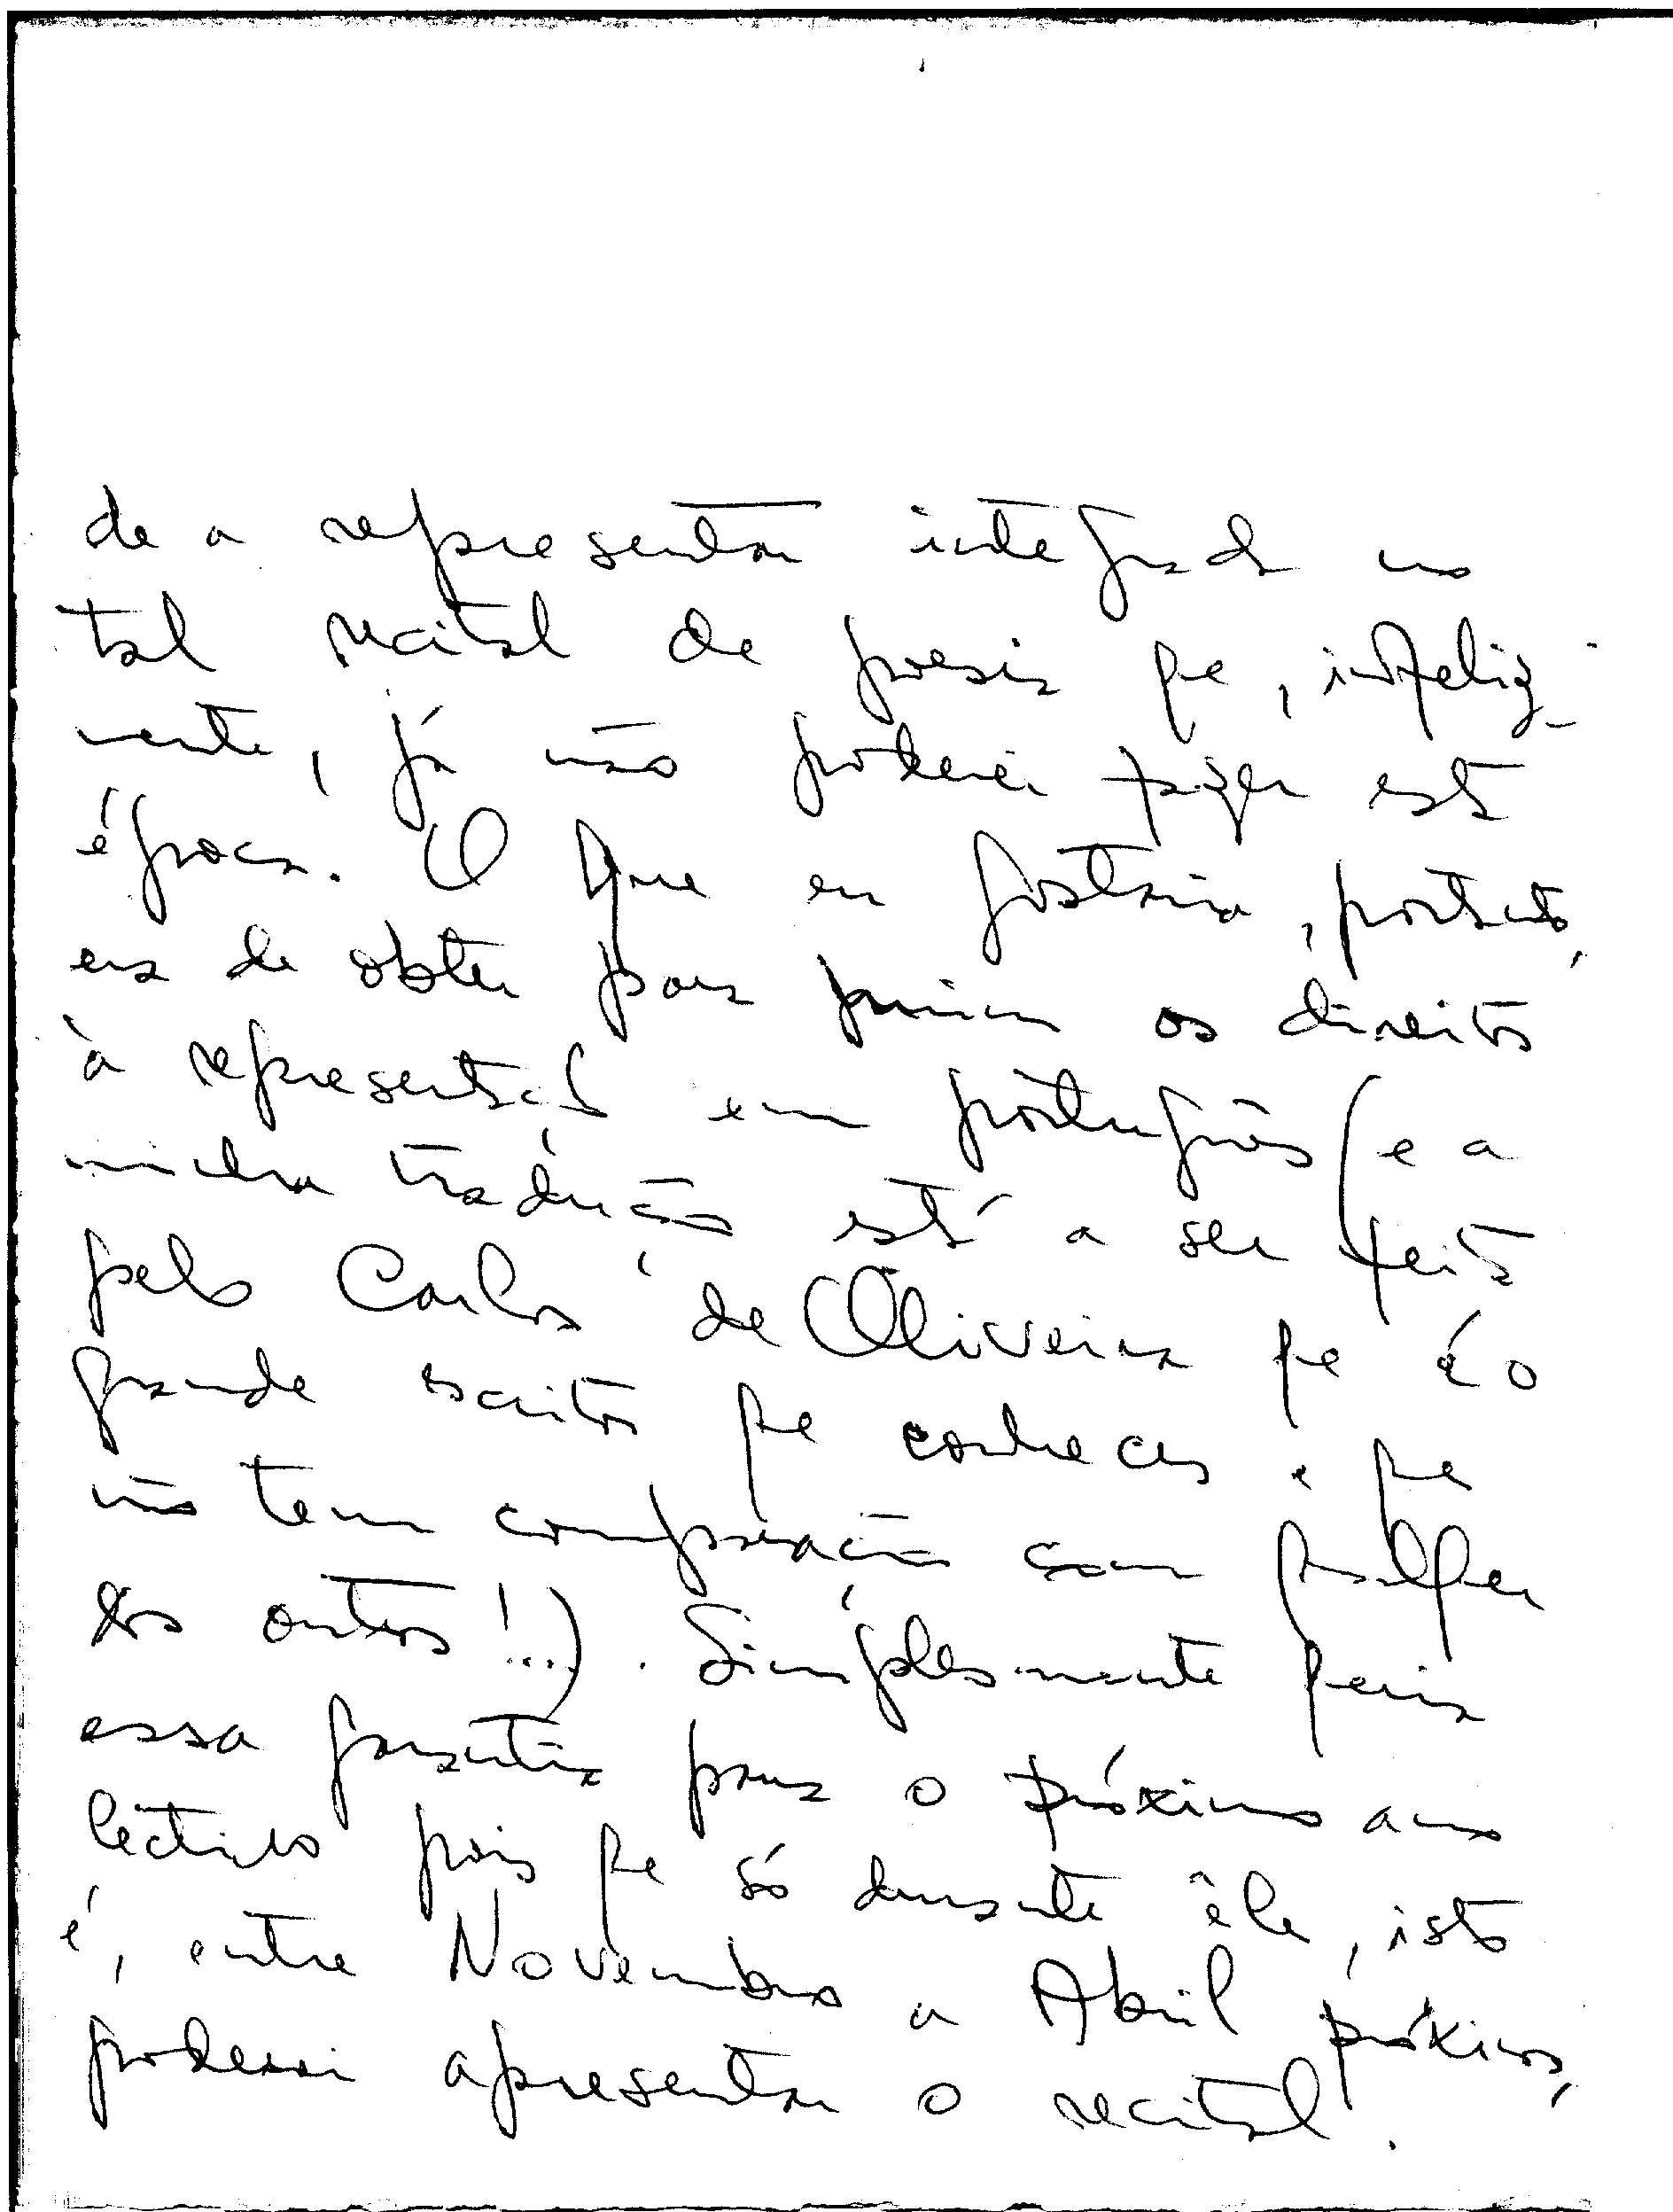 de a representar integrada no
tal recital de poesia que, infeliz-
mente, já não poderei fazer esta
época. O que eu gostaria, portanto,
era de obter para mim os direitos
à representação em português (e a
minha tradução está a ser feita
pelo Carlos de Oliveira que é o
grande escritor que conheces e que
não tem comparação com qualquer
dos outros!...). Simplesmente queria
essa garantia para o próximo ano
lectivo pois que só durante êle, isto
é, entre Novembro a Abril próximos,
poderei apresentar o recital.